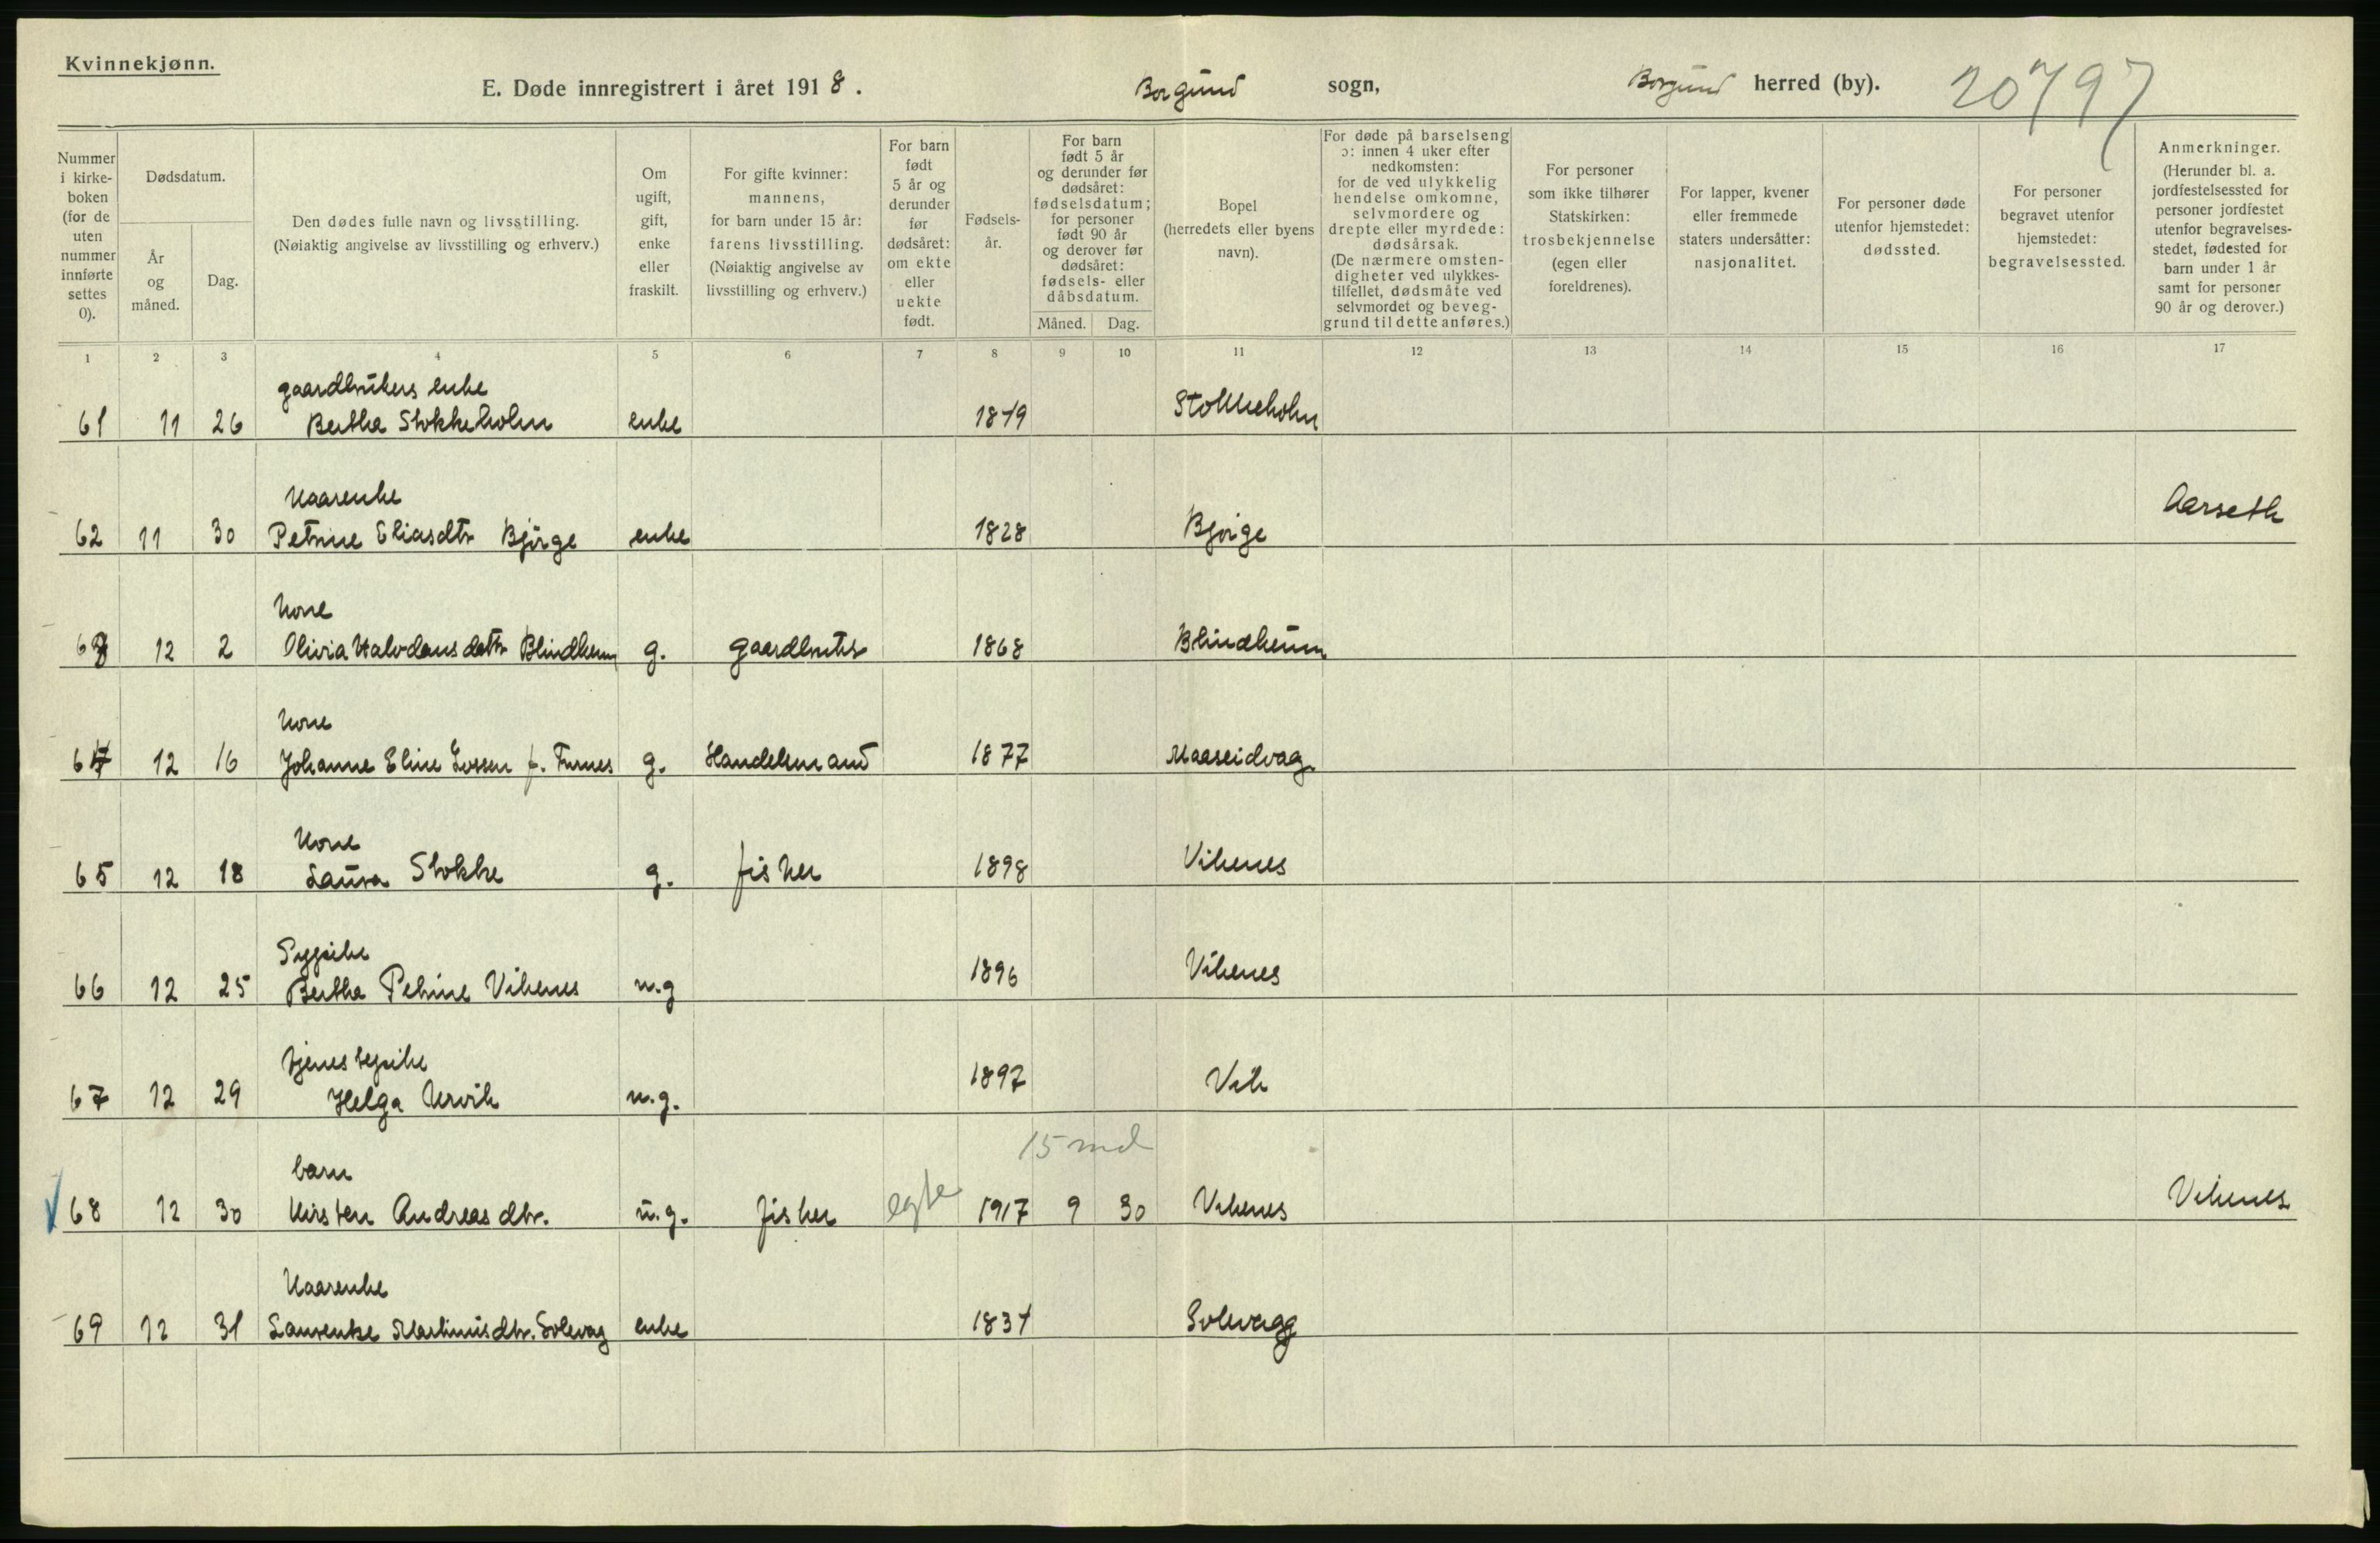 Kvinnekjønn.
E. Døde innregistrert i året 1918. Borgund sogn, Borgund herred (by). 20797
Nummer i kirkeboken (for de uten nummer innførte settes 0).
Dødsdatum.
År og måned.
Dag.
Den dødes fulle navn og livsstilling.
(Nøiaktig angivelse av livsstilling og erhverv.)
Om ugift, gift, enke eller fraskilt.
For gifte kvinner: mannens, for barn under 15 år: farens livsstilling. (Nøiaktig angivelse av livsstilling og erhverv.)
For barn født 5 år og derunder før dødsåret: om ekte eller uekte født.
Fødselsår.
For barn født 5 år og derunder før dødsåret: fødselsdatum; for personer født 90 år og derover før dødsåret: fødsels- eller dåbsdatum.
Måned. Dag.
Bopel (herredets eller byens navn).
For døde på barselseng ɔ: innen 4 uker efter nedkomsten: for de ved ulykkelig hendelse omkomne, selvmordere og drepte eller myrdede: dødsårsak. (De nærmere omstendigheter ved ulykkestilfellet, dødsmåte ved selvmordet og beveggrund til dette anføres.)
For personer som ikke tilhører Statskirken: trosbekjennelse (egen eller foreldrenes).
For lapper, kvener eller fremmede staters undersåtter: nasjonalitet.
For personer døde utenfor hjemstedet: dødssted.
For personer begravet utenfor hjemstedet: begravelsessted.
Anmerkninger. (Herunder bl. a. jordfestelsessted for personer jordfestet utenfor begravelsesstedet, fødested for barn under 1 år samt for personer 90 år og derover.)
1 2 3 4 5 6 7 8 9 10 11 12 13 14 15 16 17
gaardbrukers enke
61 11 26 Berthe Stokkeholm enke 1849 Stokkeholm
Kaarenke
62 11 30 Petrine Eliasdtr Bjørge enke 1828 Bjørge Aarseth
kone
63 12 2 Olivia Halvdansdatter Blindheim g. gaardbruker 1868 Blindheim
kone
64 12 16 Johanne Eline Lossen f. Furnes g. Handelsmand 1877 Maaseidvag
Kone
65 12 18 Laura Stokke g. fisker 1898 Vikenes
Sypike
66 12 25 Berthe Petrine Vikenes u.g 1896 Vikenes
tjenestepike
67 12 29 Helga Urvik u.g. 1897 Vik
15 md
barn
68 12 30 Kirsten Andreasdtr. u.g. fisker egte 1917 9 30 Vikenes Vikenes
Kaarenke
69 12 31 Laurentse Martinusdtr. Solevag enke 1834 Solevagg